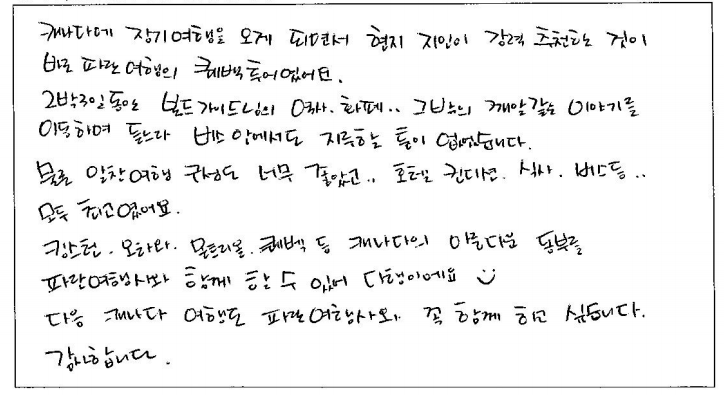 캐나다에 장기여행을 오게 되면서 현지 지인이 강력 추천하는 것이
바로 파란여행의 퀘백투어였어요.
2박3일동안 가이드님의 역사. 화폐.. 그밖의 깨알같은 이야기를
이동하며 듣느라 버스 안에서도 지루할 틈이 없었습니다.
물론 알찬여행 구성도 너무 좋았고.. 호텔 컨디션. 식사. 버스 등..
모두 최고였어요.
킹스턴. 오타와. 몬트리올. 퀘백 등 캐나다의 아름다운 동부를
파란여행사와 함께 할 수 있어 다행이에요
다음 캐나다 여행도 파란여행사와 꼭 함께 하고 싶습니다.
감사합니다.